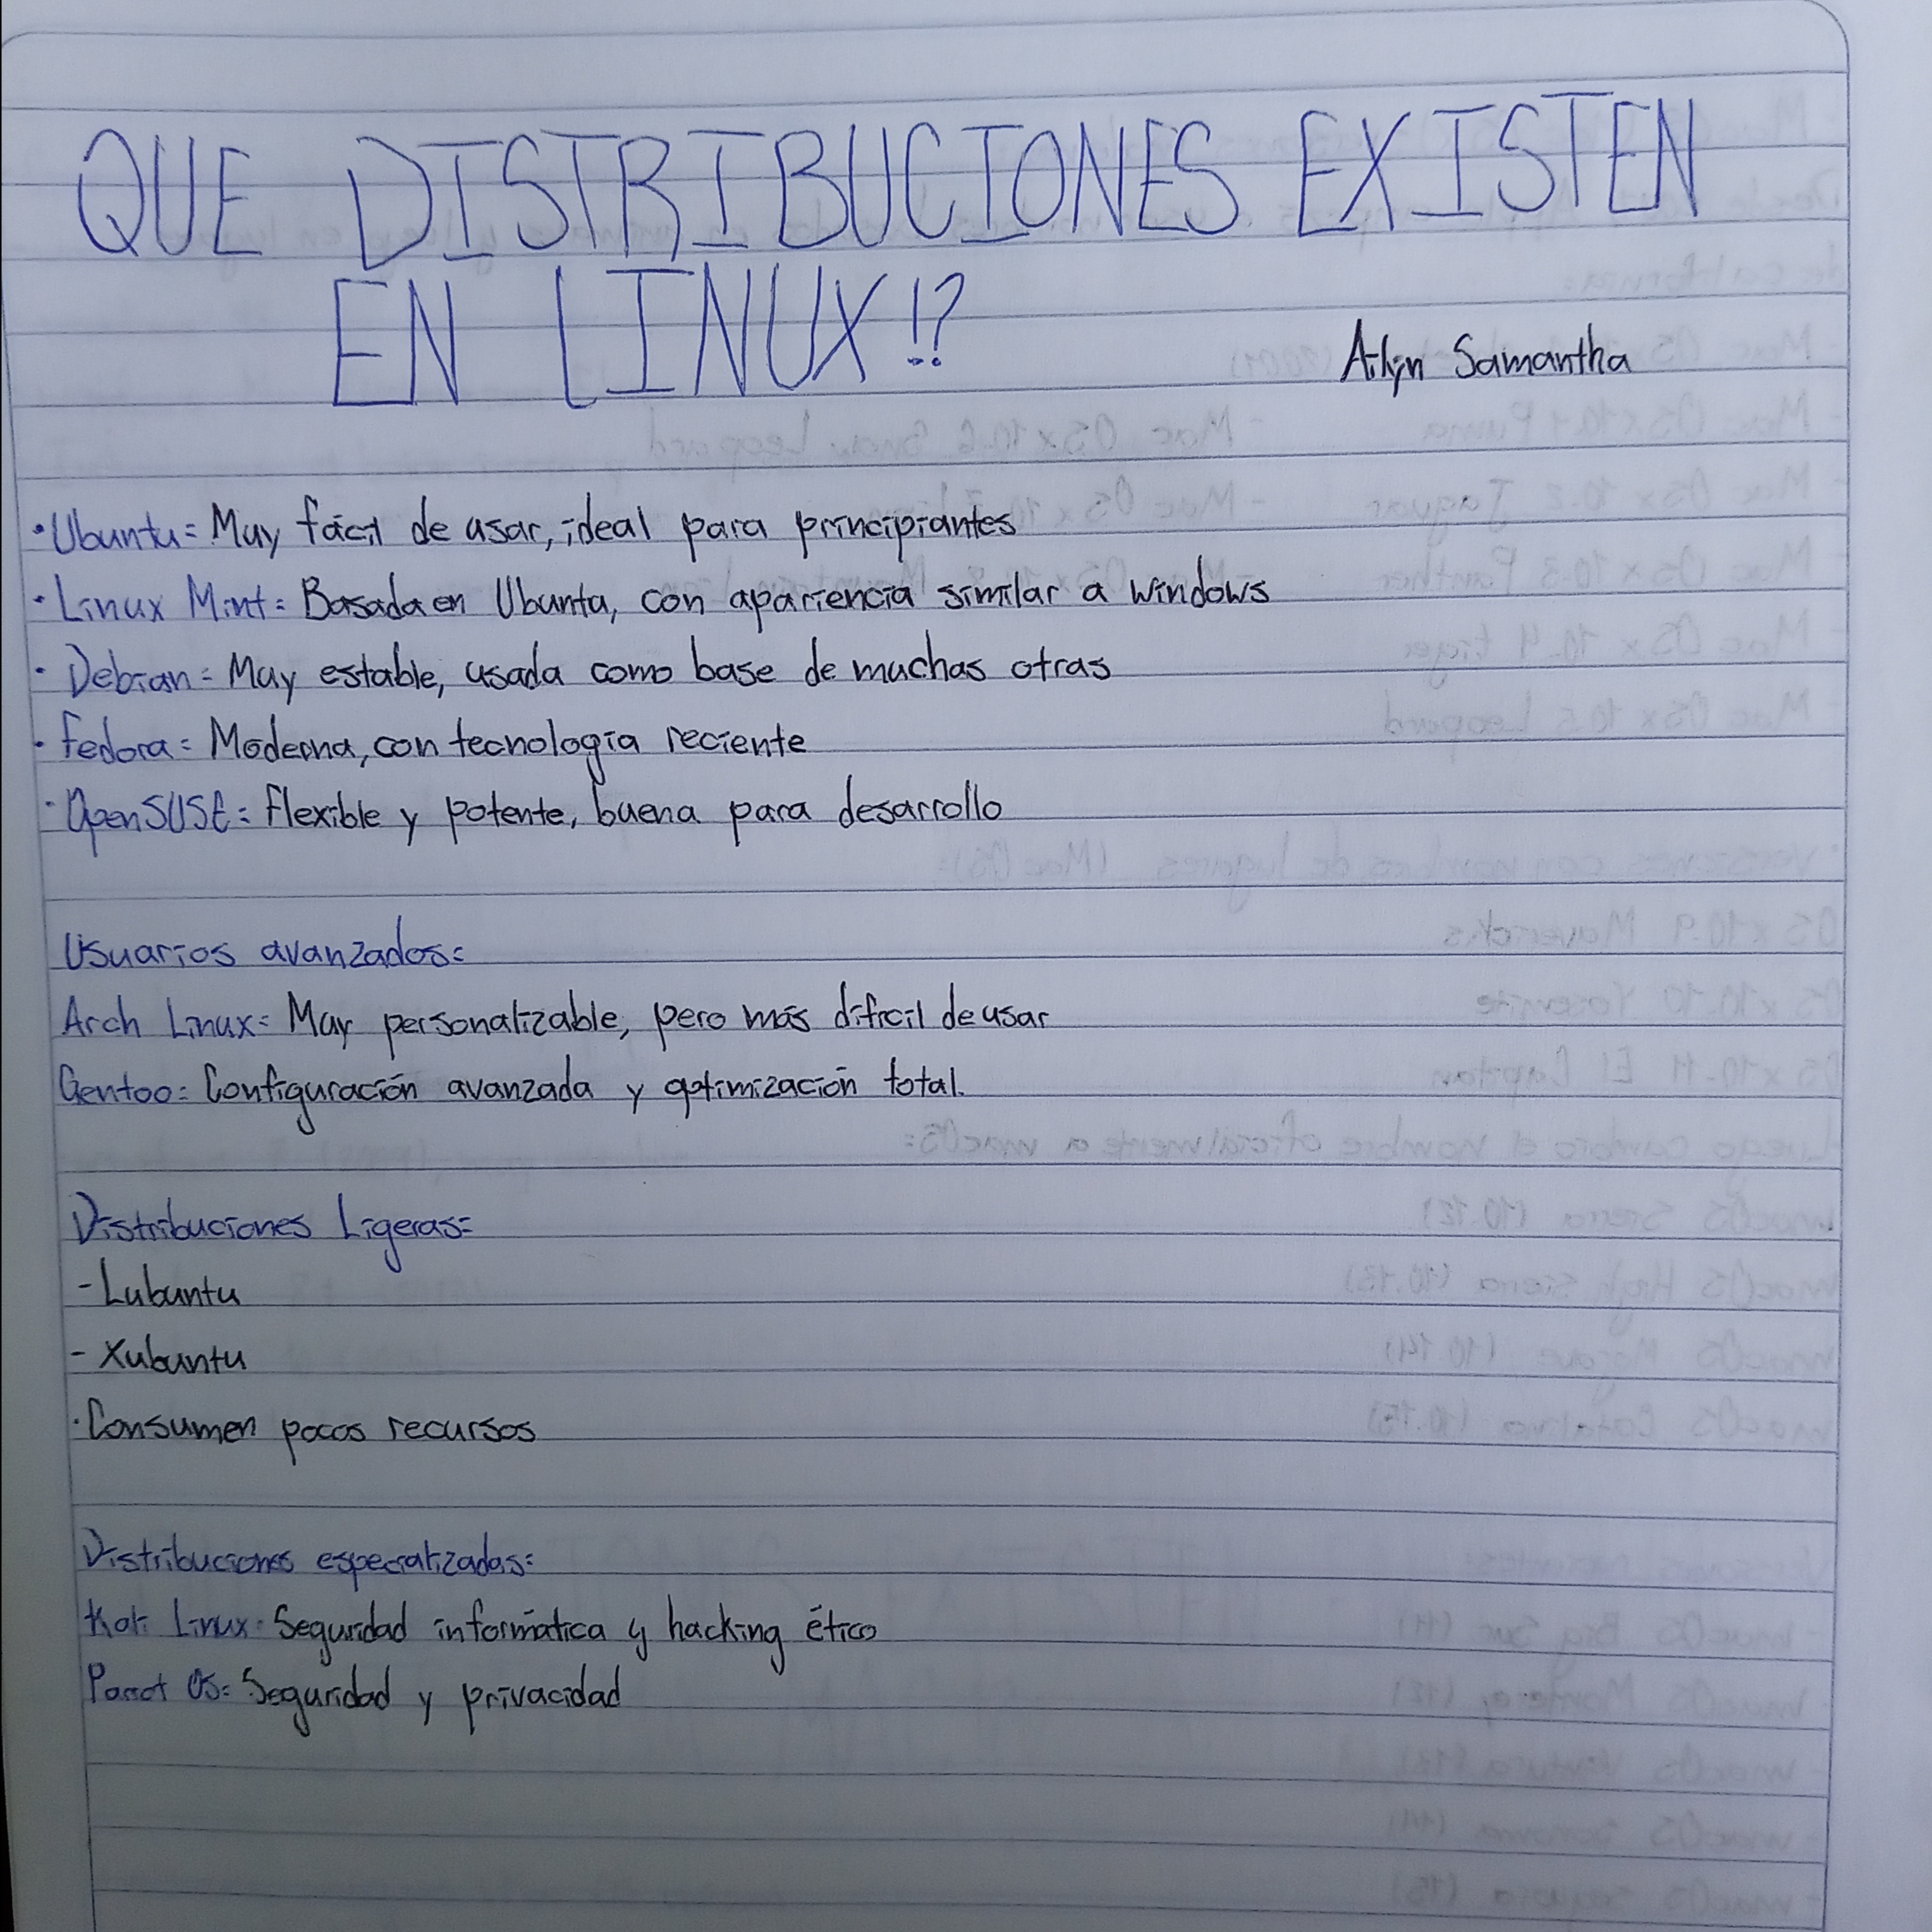 QUE DISTRIBUCIONES EXISTEN
EN LINUX!?
Ailyn Samantha
·Ubuntu= Muy fácil de usar, ideal para principiantes
·Linux Mint= Basada en Ubuntu, con apariencia similar a windows
·Debian= Muy estable, usada como base de muchas otras
·fedora= Moderna, con tecnología reciente
·OpenSUSE= flexible y potente, buena para desarrollo
Usuarios avanzados=
Arch Linux= Muy personalizable, pero más difícil de usar
Gentoo= Configuración avanzada y optimización total.
Distribuciones Ligeras=
-Lubuntu
-Xubuntu
·Consumen pocos recursos
Distribuciones especializadas=
Kali Linux= Seguridad informática y hacking ético
Parrot OS= Seguridad y privacidad